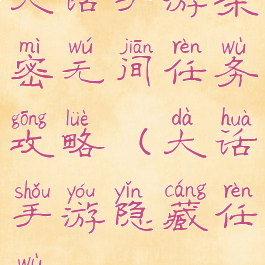 mì wú jiān rèn wù
密无间任务
gōng lüè dà huà
攻略（大话
shǒu yóu yǐn cáng rèn
手游隐藏任
wù